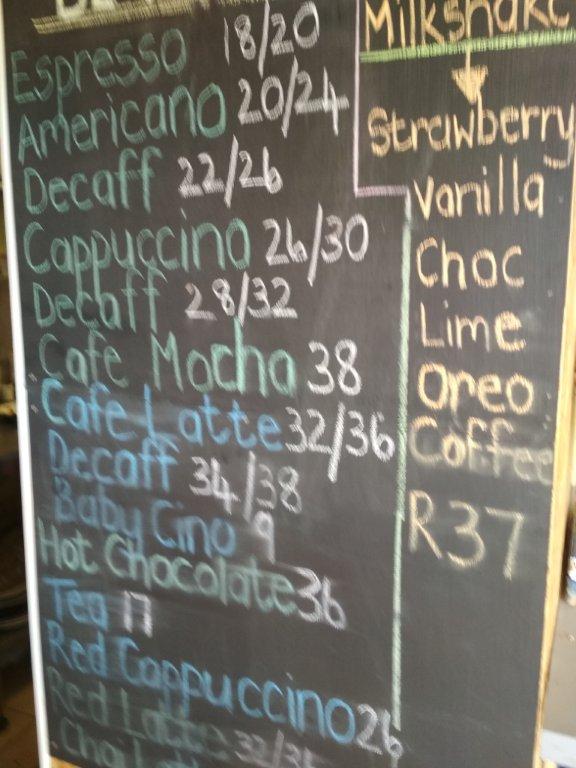 Espresso 18/20
Americano 20/24
Decaff 22/26
Cappuccino 26/30
Decaff 28/32
Cafe Mocha 38
Cafe Latte 32/36
Decaff 34/38
Baby Cino 9
Hot Chocolate 36
Tea 17
Red Cappuccino 26
Red Latte
Milkshake
Strawberry
Vanilla
Choc
Lime
Oreo
Coffee
R37